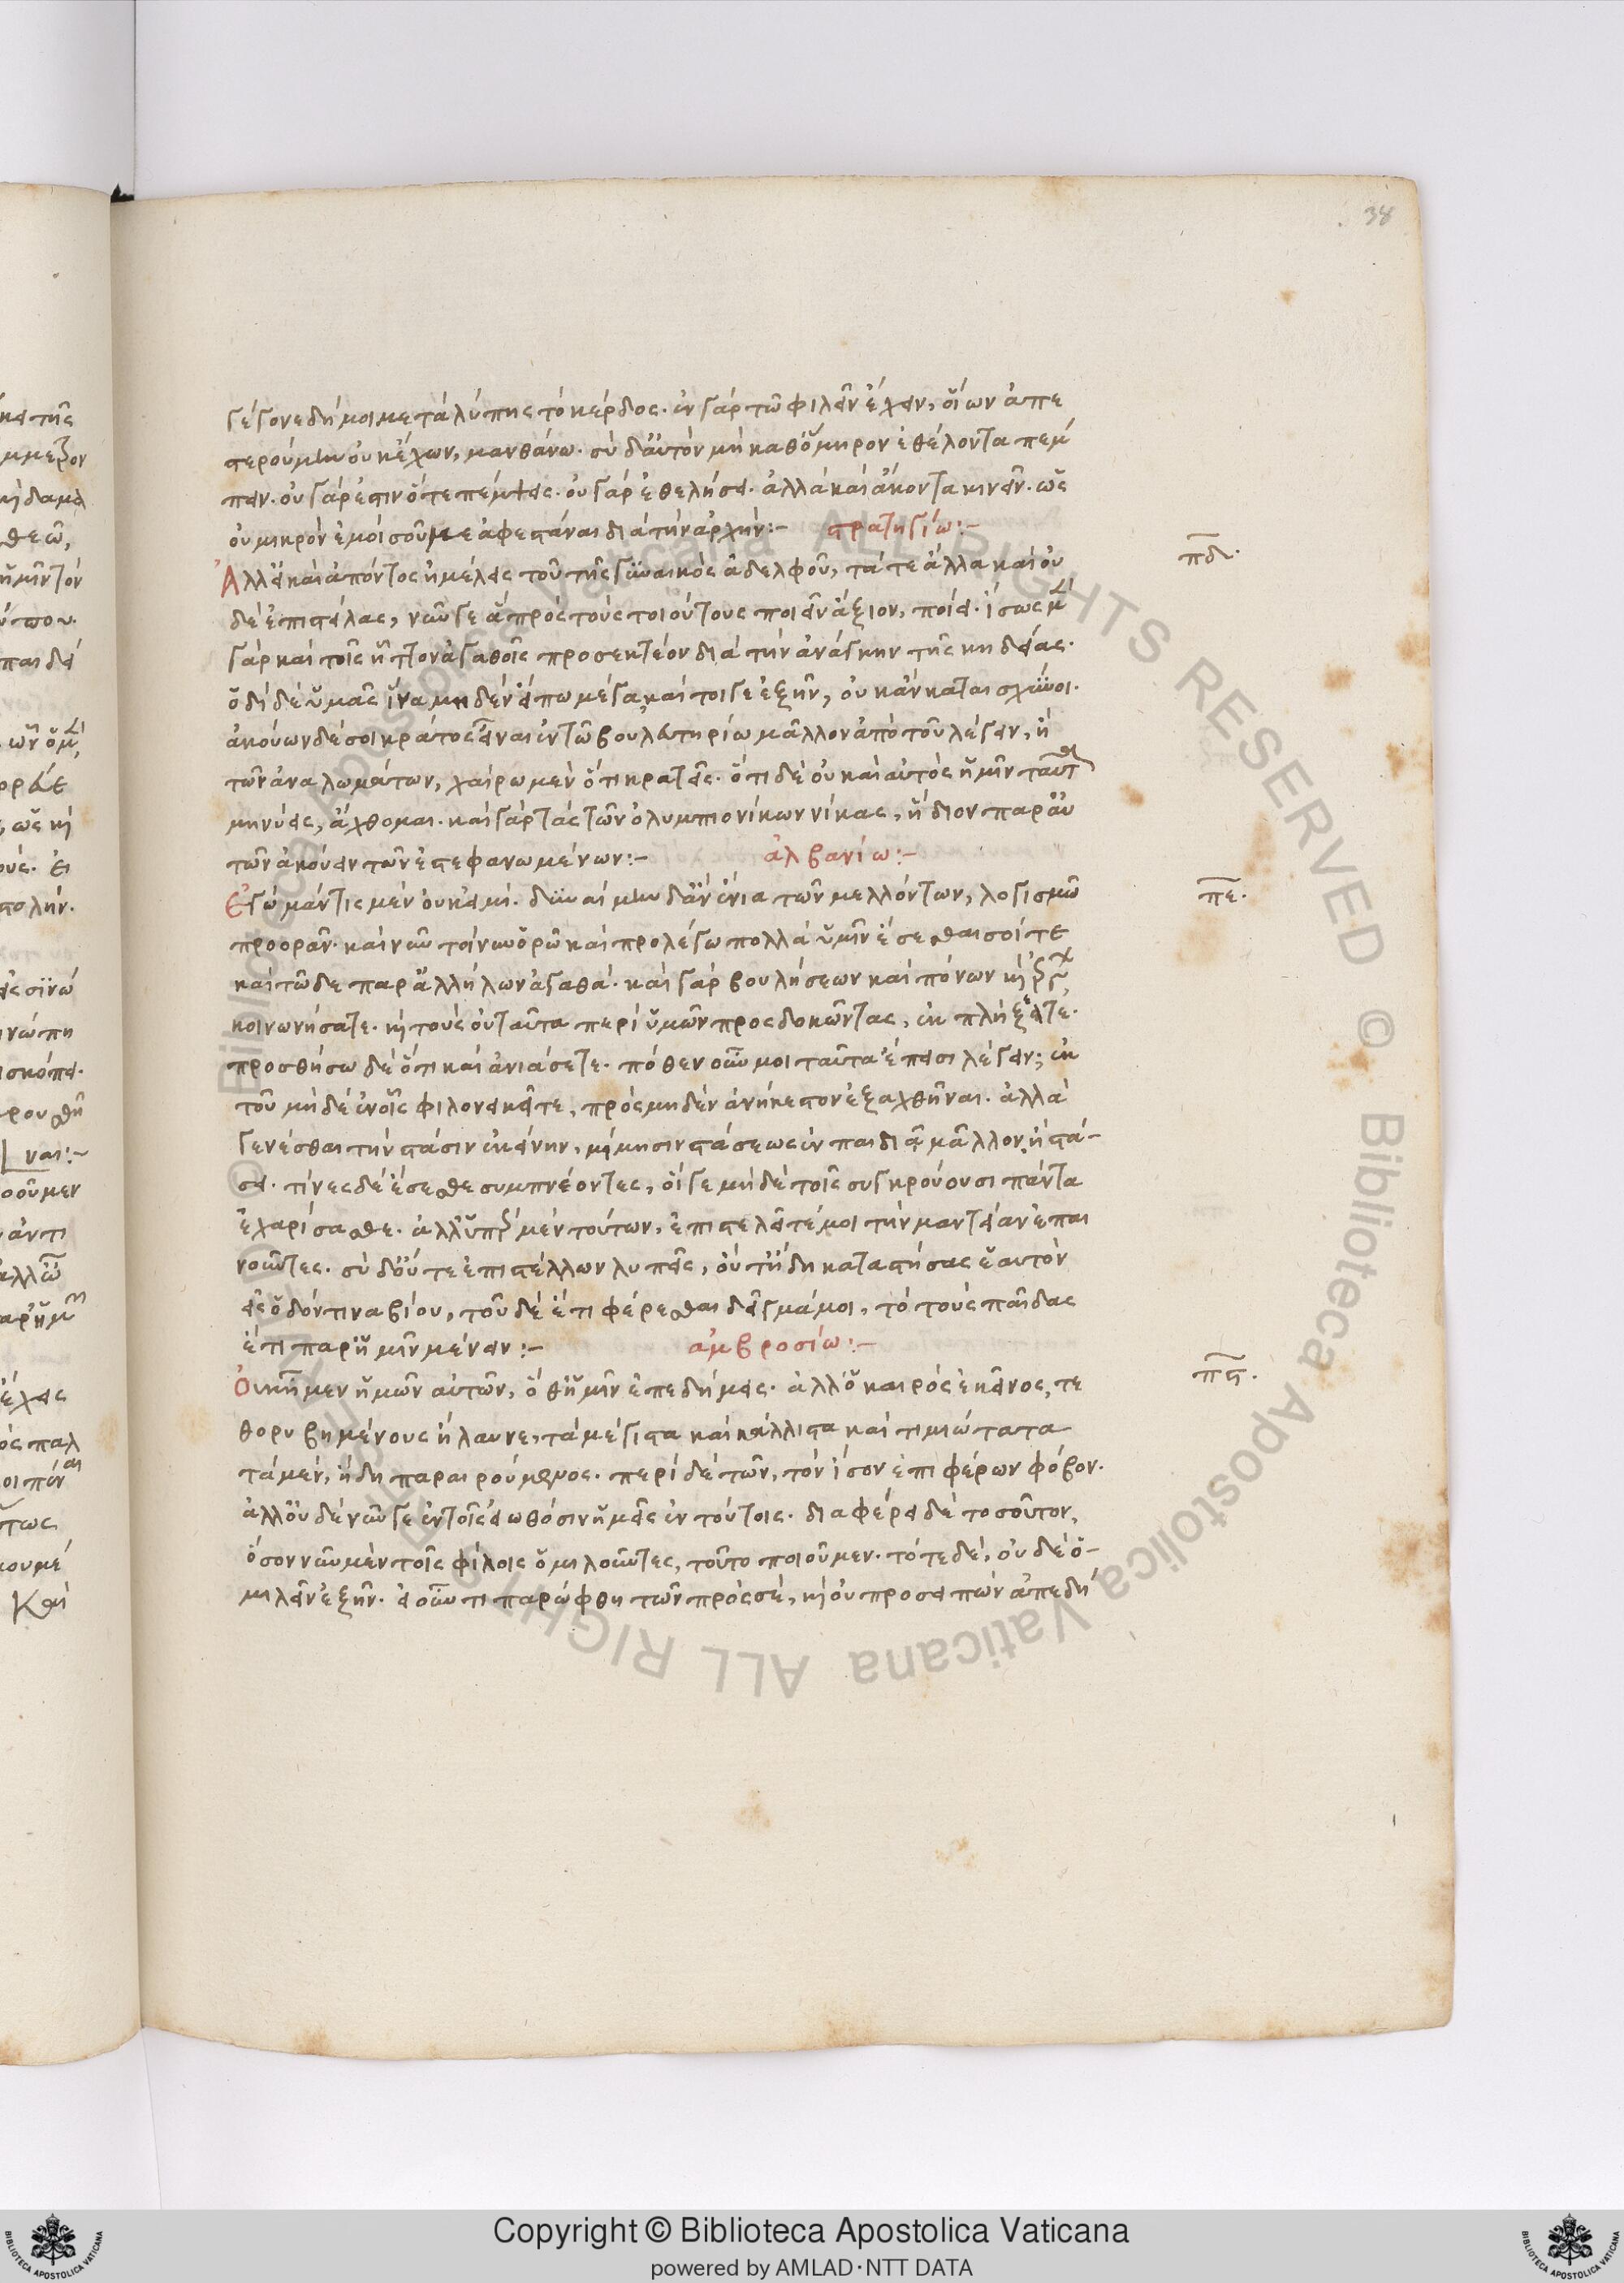 38
γέγονε δή μοι μετὰ λύπης τὸ κέρδος. ἐν γὰρ τῷ φιλεῖν ἔχειν, οἵων ἀπε
στερούμην οὐκ ἔχων, μανθάνω. σὺ δ' αὑτὸν μὴ καθ' ὅμηρον ἐθέλοντα πέμ
πειν. οὐ γάρ ἐστιν ὅτε πέμψεις. οὐ γὰρ ἐθελήσει. ἀλλὰ καὶ ἄκοντα κινεῖν. ὡς
οὐ μικρὸν ἐμοὶ σοῦ με ἀφεστάναι διὰ τὴν ἀρχήν:- στρατηγίω:-
πδ.
Ἀλλὰ καὶ ἀπόντος ἠμέλεις τοῦ τῆς γυναικὸς ἀδελφοῦ, τά τε ἄλλα καὶ οὐ
δὲ ἐπιστείλας, νῦν γε ἃ πρὸς τοὺς τοιούτους ποιεῖν ἄξιον, ποίει. ἴσως μὲν
γὰρ καὶ τοῖς ἧττον ἀγαθοῖς προσεκτέον διὰ τὴν ἀνάγκην τῆς κηδείας.
ὁ δὴ δὲ ὑμᾶς ἵνα μηδὲν εἴπω μέγα, καίτοι γε ἐξῆν, οὐκ ἂν καταισχύνοι.
ἀκούων δέ σοι κράτος εἶναι ἐν τῷ βουλευτηρίω μᾶλλον ἀπὸ τοῦ λέγειν, ἢ
τῶν ἀναλωμάτων, χαίρω μὲν ὅτι κρατεῖς. ὅτι δὲ οὐ καὶ αὐτὸς ἡμῖν ταῦτα
μηνύεις, ἄχθομαι. καὶ γὰρ τὰς τῶν ὀλυμπιονίκων νίκας, ἥδιον παρ' αὐ
τῶν ἀκούειν τῶν ἐστεφανωμένων:- ἀλβανίω:-
πε.
Ἐγὼ μάντις μὲν οὐκ εἰμί. δυναίμην δ' ἂν ἔνια τῶν μελλόντων, λογισμῷ
προορᾶν. καὶ νῦν τοίνυν ὁρῶ καὶ προλέγω πολλὰ ὑμῖν ἔσεσθαι σοί τε
καὶ τῷδε παρ' ἀλλήλων ἀγαθά. καὶ γὰρ βουλήσεων καὶ πόνων καὶ
κοινωνήσατε. καὶ τοὺς οὐ ταῦτα περὶ ὑμῶν προσδοκῶντας, ἐκπλήξετε.
προσθήσω δὲ ὅτι καὶ ἀνιάσετε. πόθεν οὖν μοι ταῦτα ἔπεισι λέγειν; ἐκ
τοῦ μὴ δὲ ἐν οἷς φιλονεικεῖτε, πρὸς μηδὲν ἀνήκεστον ἐξαχθῆναι. ἀλλὰ
γενέσθαι τὴν στάσιν ἐκείνην, μίμησιν στάσεως ἐν παιδιᾷ μᾶλλον, ἢ στά-
σει. τίνες δὲ ἔσεσθε συμπνέοντες, οἵ γε μὴ δὲ τοῖς συγκρούουσι πάντα
ἐχαρίσασθε. ἀλλ' ὑπὲρ μὲν τούτων, ἐπιστελεῖτέ μοι τὴν μαντείαν ἐπαι
νοῦντες. σὺ δ' οὔτε ἐπιστέλλων λυπεῖς, οὔτ' ἤδη καταστήσας ἑαυτὸν
εἰς ὁδόν τινα βίου, τοῦ δὲ ἔτι φέρεσθαι δεῖγμά μοι, τὸ τοὺς παῖδας
ἔτι παρ' ἡμῖν μένειν:- ἀμβροσίω:-
πϛ.
Οὐκ ἦμεν ἡμῶν αὐτῶν, ὅθ' ἡμῖν ἐπεδήμεις. ἀλλ' ὁ καιρὸς ἐκεῖνος, τε
θορυβημένους ἤλαυνε, τὰ μέγιστα καὶ κάλλιστα καὶ τιμιώτατα
τὰ μὲν, ἤδη παραιρούμενος. περὶ δὲ τῶν, τὸν ἴσον ἐπιφέρων φόβον.
ἀλλ' οὐδὲ νῦν γε ἐν τοῖς εἰωθόσιν ἡμεῖς ἐν τούτοις. διαφέρει δὲ τοσοῦτον,
ὅσον νῦν μὲν τοῖς φίλοις ὁμιλοῦντες, τοῦτο ποιοῦμεν. τότε δὲ, οὐδὲ ὁ-
μιλεῖν ἐξῆν. εἰ οὖν τι παρώφθη τῶν πρὸς σὲ, καὶ οὐ προσειπὼν ἀπεδή
Copyright © Biblioteca Apostolica Vaticana
powered by AMLAD·NTT DATA